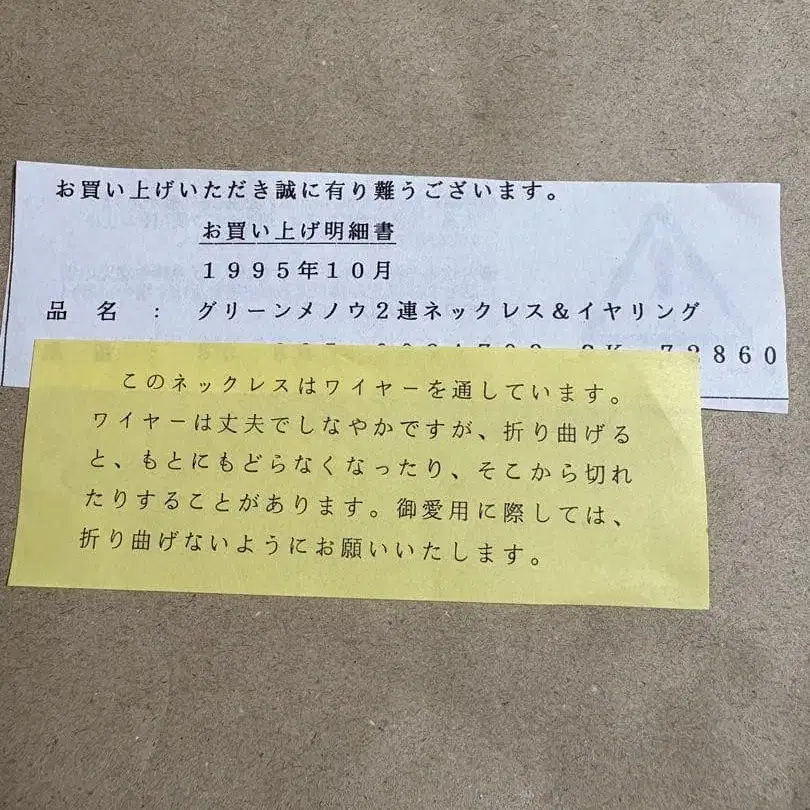 お買い上げいただき誠に有り難うございます。
お買い上げ明細書
1995年10月
品 名 : グリーンメノウ2連ネックレス&イヤリング
72860
このネックレスはワイヤーを通しています。
ワイヤーは丈夫でしなやかですが、折り曲げる
と、もとにもどらなくなったり、そこから切れ
たりすることがあります。御愛用に際しては、
折り曲げないようにお願いいたします。